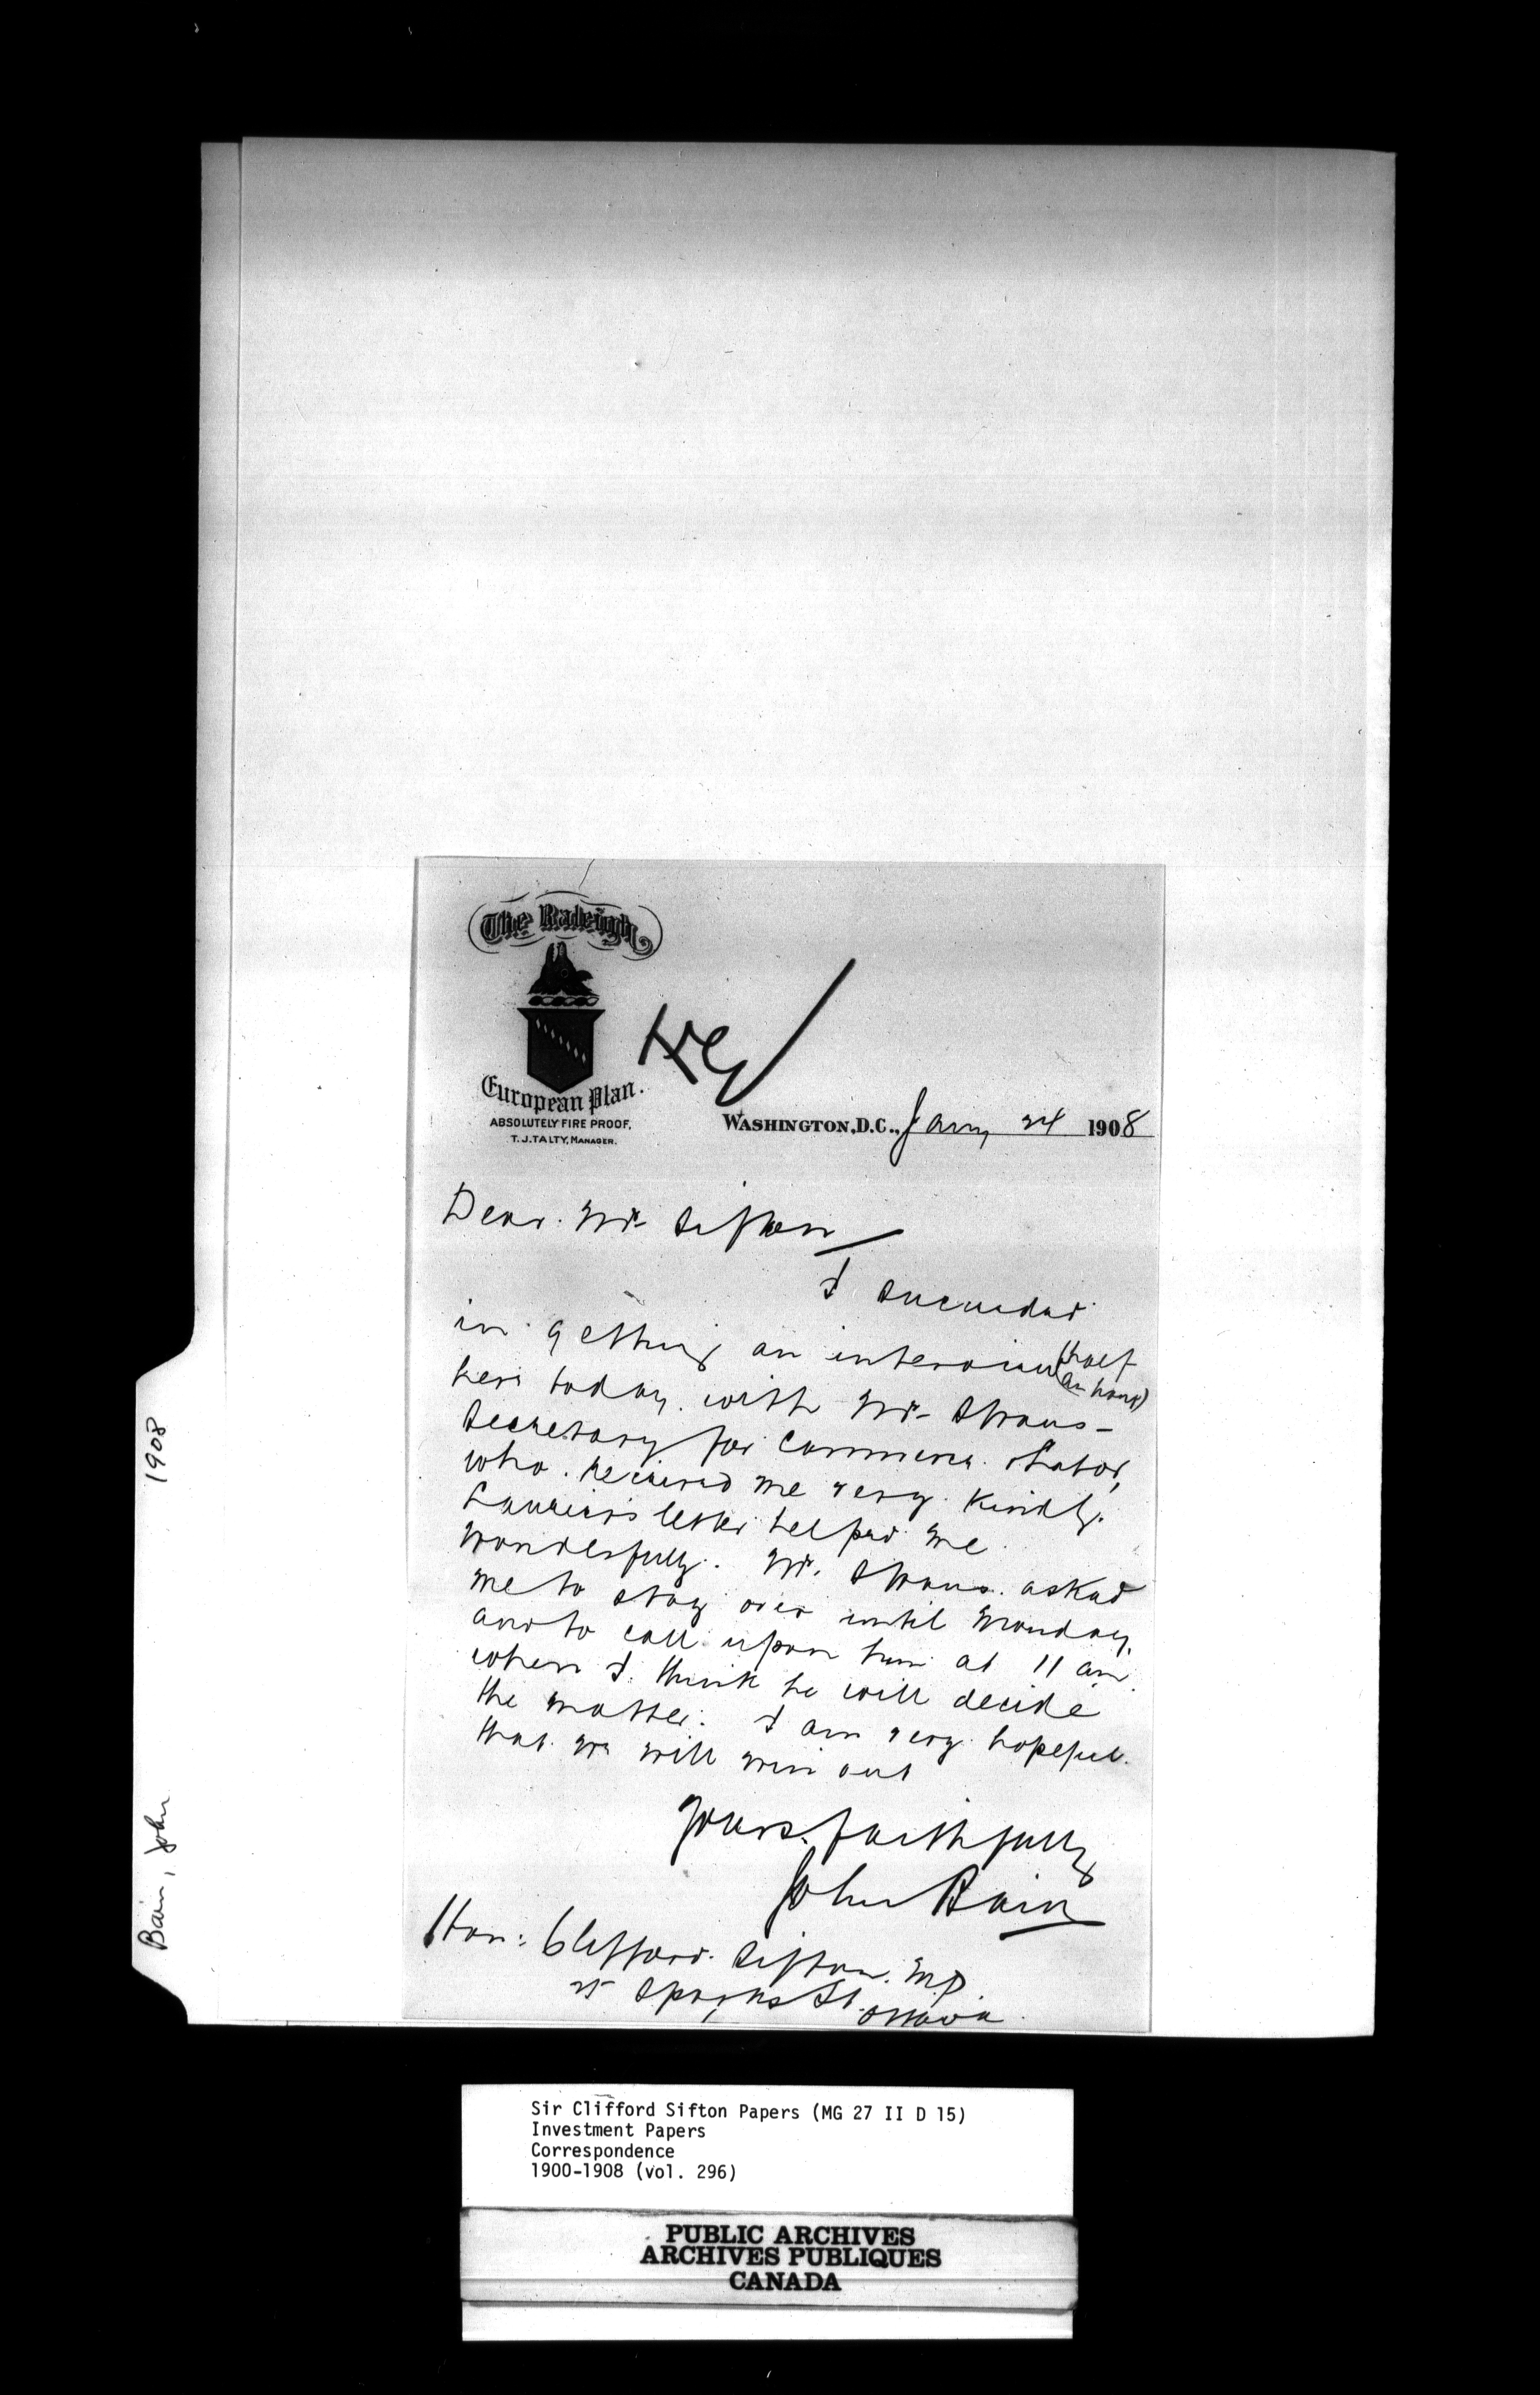 The Raleigh
European Plan.
ABSOLUTELY FIRE PROOF.
T. J. TALTY, MANAGER.
WASHINGTON, D.C., Jany 24 1908
Dear Mr Sifton
I succeeded
in getting an interview (half an hour)
here today with Mr Straus -
Secretary for Commerce & Labor,
who received me very kindly.
Laurier's letter helped me
wonderfully. Mr. Straus asked
me to stay over until Monday,
and to call upon him at 11 am
when I think he will decide
the matter. I am very hopeful
that we will win out
Yours faithfully
John Bain
Hon: Clifford Sifton. M.P.
25 Sparks St. Ottawa
Bain, John 1908
Sir Clifford Sifton Papers (MG 27 II D 15)
Investment Papers
Correspondence
1900-1908 (vol. 296)
PUBLIC ARCHIVES
ARCHIVES PUBLIQUES
CANADA